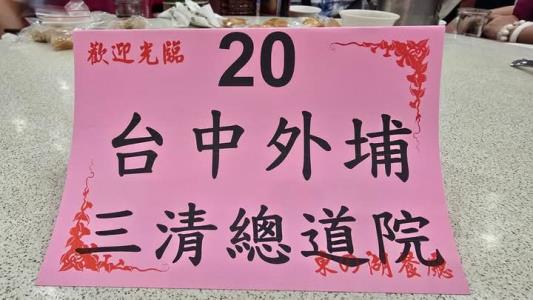 歡迎光臨
20
台中外埔
三清總道院
湖餐廳